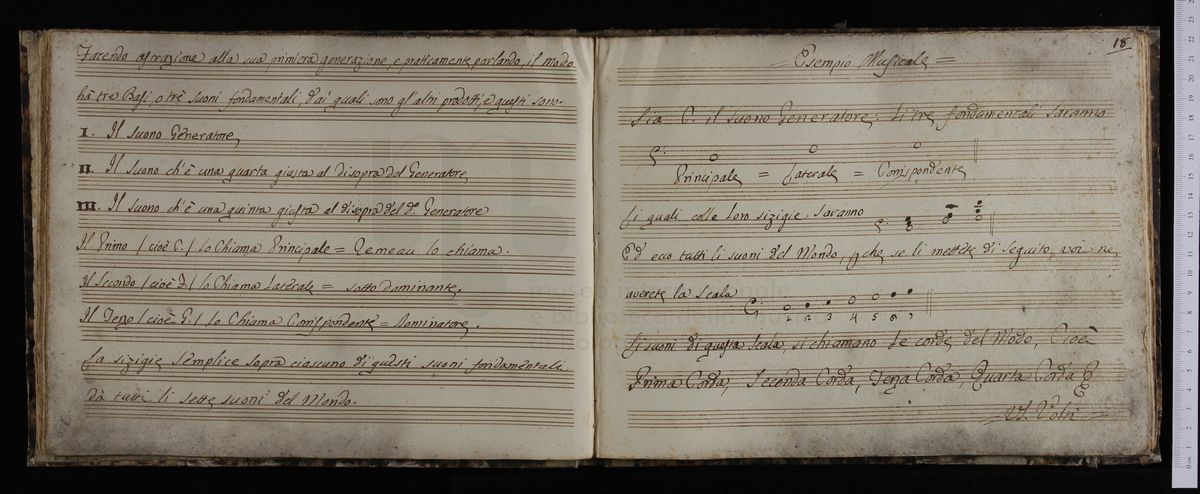 Facendo astrazione alla sua primiera generazione, e praticamente parlando, il Modo
hà tre Basi, o trè suoni fondamentali, d'ai quali sono gl'altri prodotti, e questi sono.
I. Il Suono Generatore
II. Il Suono ch'è una quarta giusta al disopra del Generatore
III. Il Suono ch'è una quinta giusta al disopra del d.º Generatore
Il Primo / cioè C. / lo Chiama Principale = Remeau lo chiama.
Il Secondo / cioè F. / lo Chiama Laterale = sotto dominante.
Il Terzo / cioè G. / lo Chiama Corrispondente = Dominatore.
La sizigie Semplice sopra ciascuno di questi suoni fondamentali
dà tutti li sette suoni del Mondo.
18
= Esempio Musicale =
Sia C. il suono Generatore: li tre fondamentali saranno
Principale = Laterale = Corrispondente
Li quali colle loro sizigie, saranno
Ed ecco tutti li suoni del Mondo, che se li mettete di seguito, voi ne
averete la Scala
1 2 3 4 5 6 7
Li suoni di questa Scala, si chiamano Le corde del Modo, Cioè
Prima Corda, Seconda Corda, Terza Corda, Quarta Corda
VS. Volti